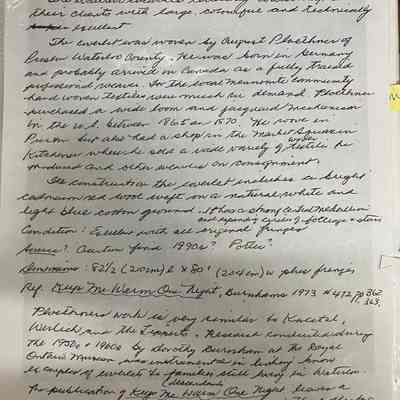 their clients with large, colourful and technically
excellent.
The coverlet was woven by August Ploethner of
Preston Waterloo County. He was born in Germany
and probably arrived in Canada as a fully trained
professional weaver. For the local Mennonite community
hand woven textiles were much in demand. Ploethner
purchased a wide loom and jacquard mechanism
in the U.S. between 1865 and 1870. He wove in
Preston but also had a shop in the Market Square in
Kitchener where he sold a wide variety of textiles he
produced and other weavers on consignment.
Its construction the coverlet includes a bright
red wool weft on a natural white and
light blue cotton ground. It has a strong central medallion
and expanding circles of foliage & stars
Condition: Excellent with all original fringes
Source? Auction find 1990s? Potter?
Dimensions: 82½ (210cm) l x 80" (204cm) w plus fringes
Ref. Keep Me Warm One Night, Burnhams 1973 #472 pp 362
363.
Ploethner's work is very similar to
and the. Research conducted during
the 1950s & 1960s by Dorothy Burnham at the Royal
Ontario Museum was instrumental in linking
of coverlets to families still living in Waterloo.
descendants
The publication of Keep Me Warm One Night